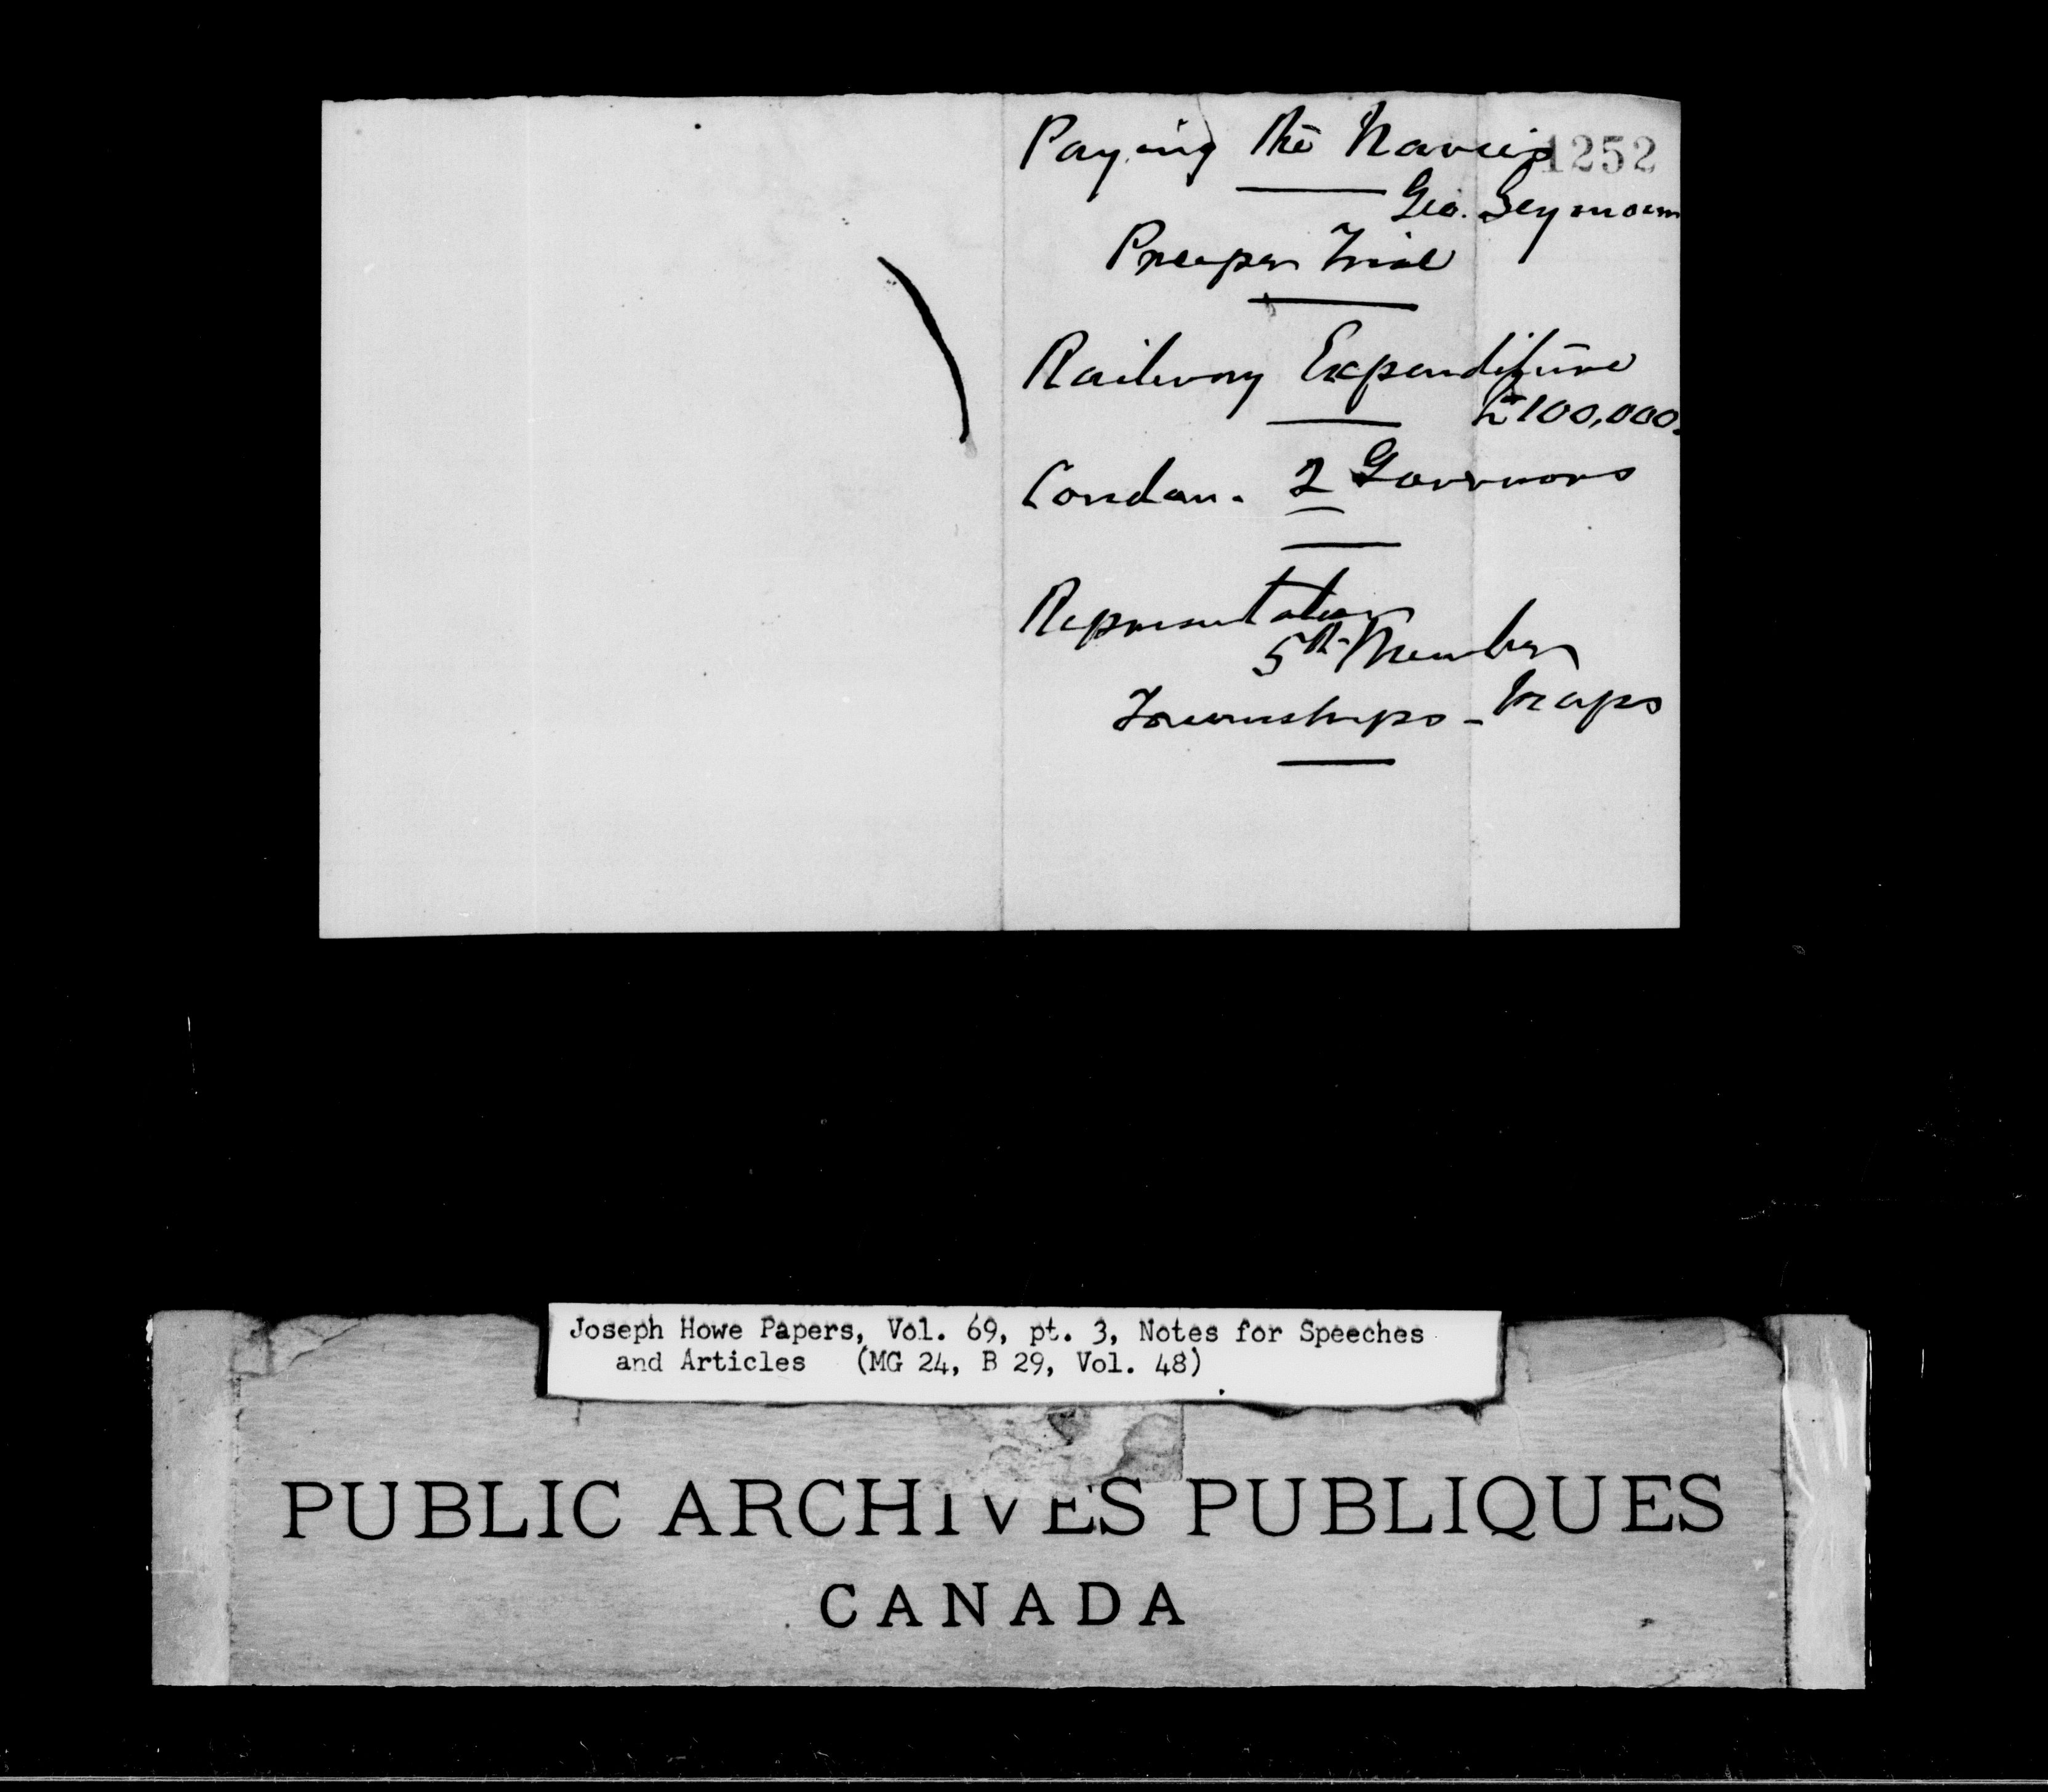 Paying the Navies
1252
Geo. Seymour
Preeper Trial
Railway Expenditure
£100,000.
Condon. 2 Governors
Representation
5th Member
Townships - Maps
Joseph Howe Papers, Vol. 69, pt. 3, Notes for Speeches
and Articles (MG 24, B 29, Vol. 48)
PUBLIC ARCHIVES PUBLIQUES
CANADA